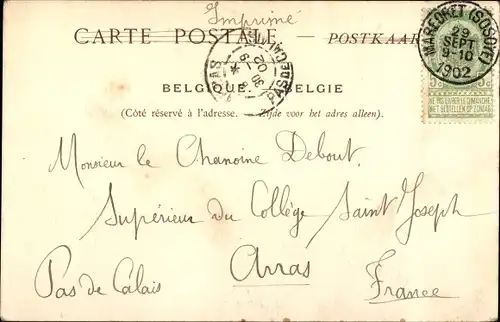 Imprimé
CARTE POSTALE — POSTKAAR
MAREDRET (SOSOYE)
29
SEPT
9-10
1902
PAS DE CALAIS
30
02
BELGIQUE BELGIE
(Côté réservé à l'adresse. — Zijde voor het adres alleen).
NE PAS LIVRER LE DIMANCHE
NIET BESTELLEN OP ZONDAG
Monsieur le Chanoine Debout.
Supérieur du Collège Saint Joseph
Arras
Pas de Calais France